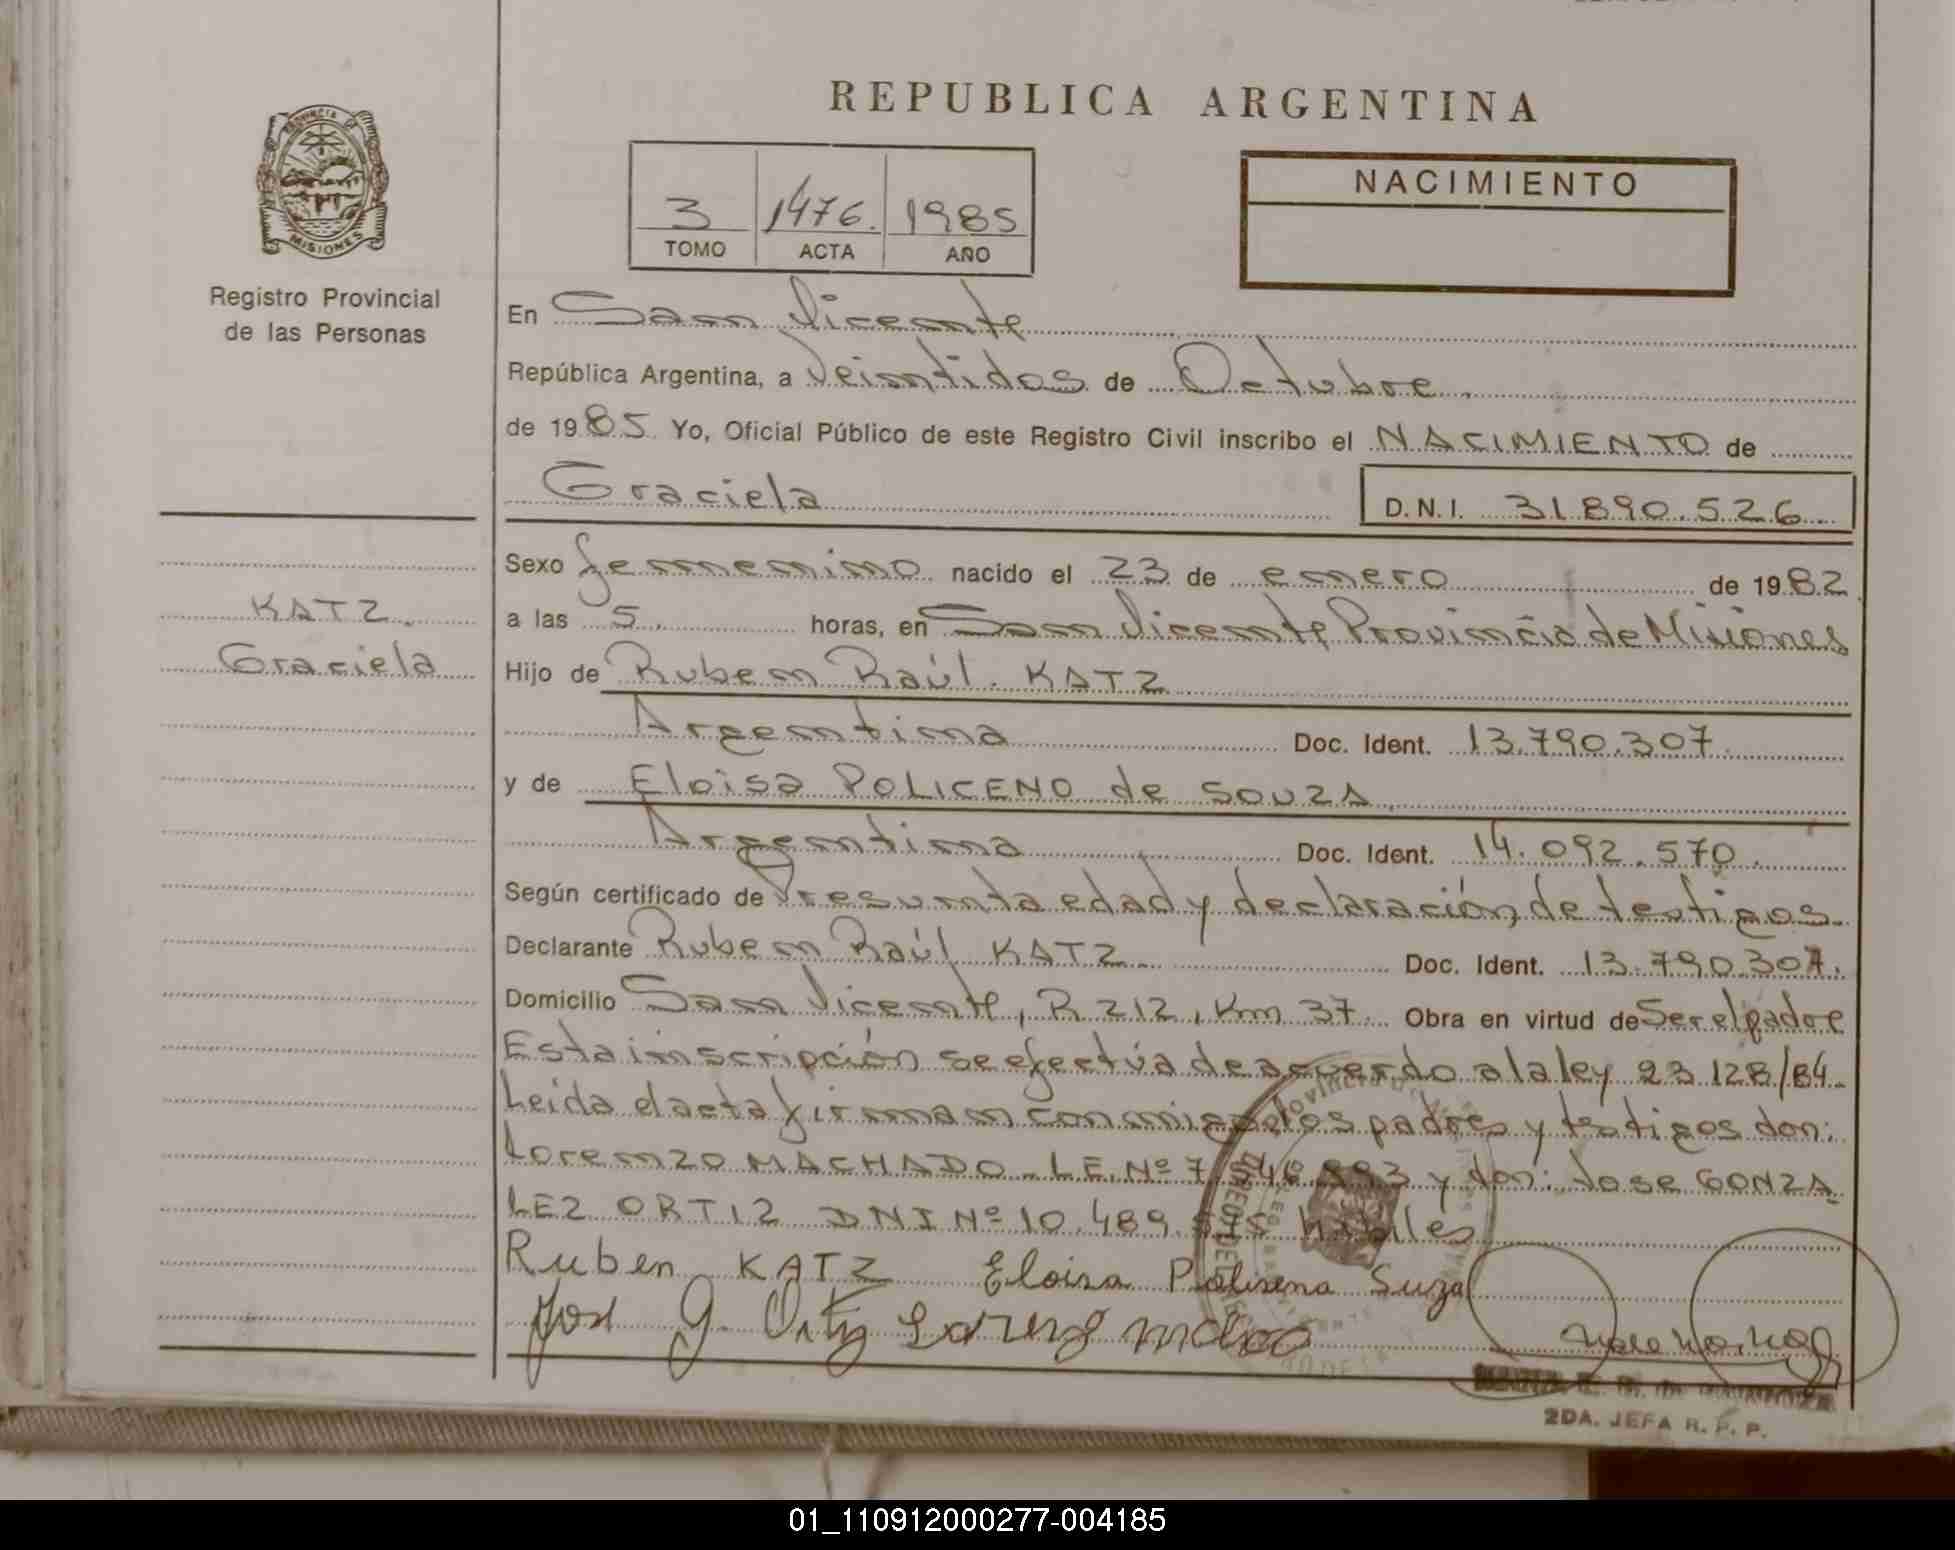 REPUBLICA ARGENTINA
PROVINCIA DE
MISIONES
Registro Provincial
de las Personas
3 1476. 1985
TOMO ACTA AÑO
NACIMIENTO
En San Vicente
República Argentina, a Veintidos de Octubre.
de 1985 Yo, Oficial Público de este Registro Civil inscribo el NACIMIENTO de
Graciela D.N.I. 31.890.526
KATZ.
Graciela
Sexo femenino nacido el 23 de enero de 1982
a las 5. horas, en San Vicente Provincia de Misiones
Hijo de Ruben Raúl. KATZ
Argentina Doc. Ident. 13.790.307.
y de Eloisa POLICENO de SOUZA
Argentina Doc. Ident. 14.092.570.
Según certificado de Presunta edad y declaración de testigos.
Declarante Ruben Raúl KATZ Doc. Ident. 13.790.307.
Domicilio San Vicente, R 212, Km 37 Obra en virtud de Ser el padre
Esta inscripción se efectúa de acuerdo a la ley 23.128/84.
Leida el acta firman conmigo los padres y testigos don:
Lorenzo MACHADO - L.E. Nº 7. y don: Jose GONZA
LEZ ORTIZ DNI Nº 10.489. habiles
Ruben KATZ Eloisa Polisena Suza
Jose G. Ortiz
2DA. JEFA R. P. P.
01_110912000277-004185